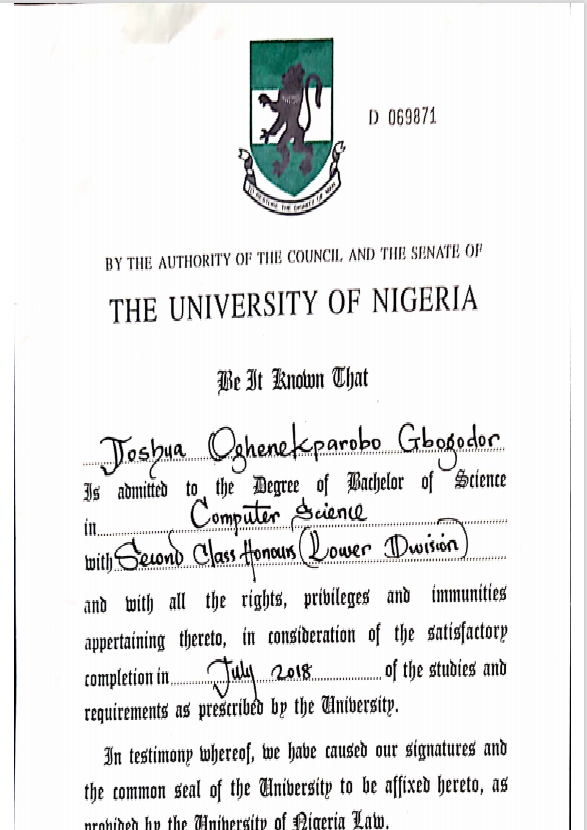 D 069871
TO RESTORE THE DIGNITY OF MAN
BY THE AUTHORITY OF THE COUNCIL AND THE SENATE OF
THE UNIVERSITY OF NIGERIA
Be It Known That
Joshua Oghenekparobo Gbogodor
Is admitted to the Degree of Bachelor of Science
in Computer Science
with Second Class Honours (Lower Division)
and with all the rights, privileges and immunities
appertaining thereto, in consideration of the satisfactory
completion in July 2018 of the studies and
requirements as prescribed by the University.
In testimony whereof, we have caused our signatures and
the common seal of the University to be affixed hereto, as
provided by the University of Nigeria Law.